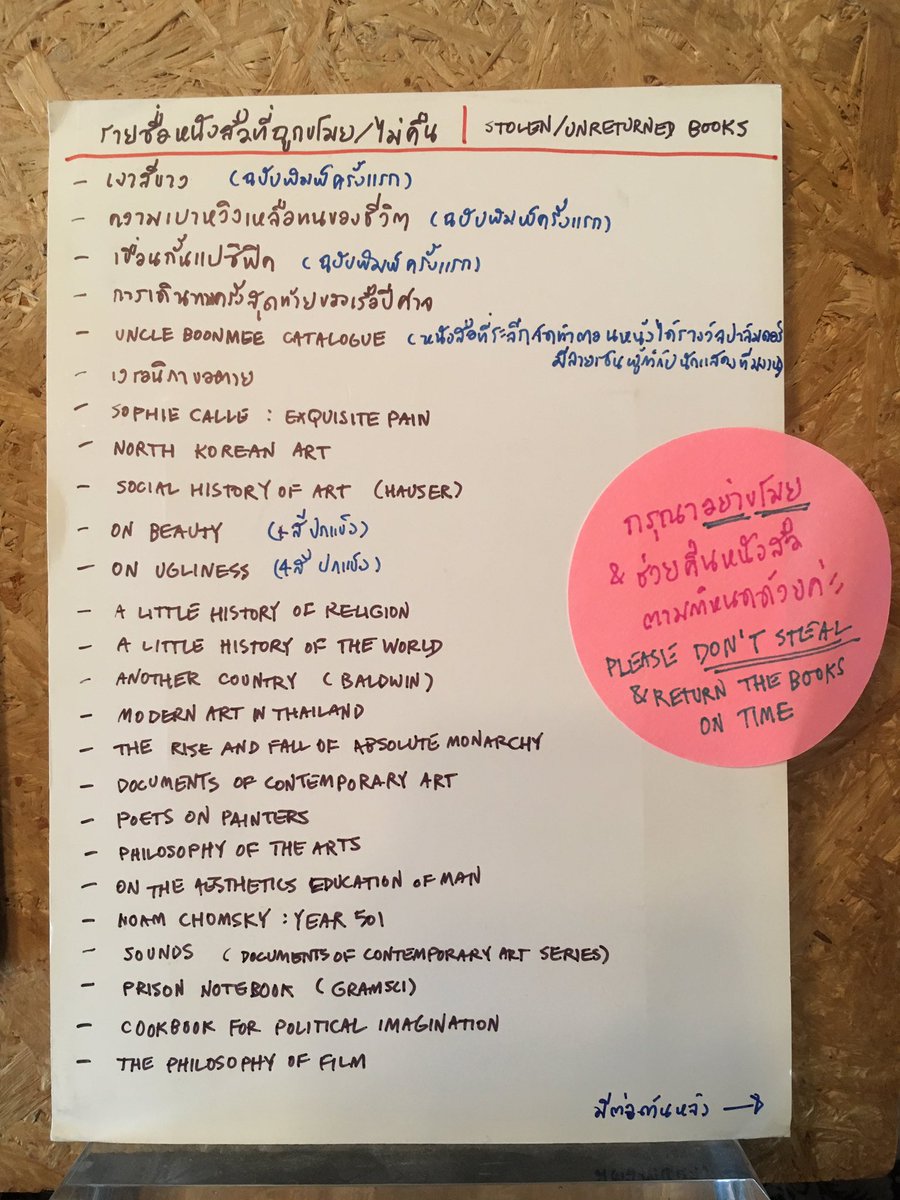 รายชื่อหนังสือที่ถูกขโมย/ไม่คืน | STOLEN/UNRETURNED BOOKS
- เงาสีขาว (ฉบับพิมพ์ครั้งแรก)
- ความเบาหวิวเหลือทนของชีวิต (ฉบับพิมพ์ครั้งแรก)
- เขื่อนกั้นแปซิฟิค (ฉบับพิมพ์ครั้งแรก)
- การเดินทางครั้งสุดท้ายของเรือปีศาจ
- UNCLE BOONMEE CATALOGUE (หนังสือที่ระลึกจัดทำตอนหนังได้รางวัลปาล์มดอร์
มีลายเซ็นผู้กำกับนักแสดงทีมงาน)
-
- SOPHIE CALLE : EXQUISITE PAIN
- NORTH KOREAN ART
- SOCIAL HISTORY OF ART (HAUSER)
- ON BEAUTY (4 สี ปกแข็ง)
- ON UGLINESS (4 สี ปกแข็ง)
- A LITTLE HISTORY OF RELIGION
- A LITTLE HISTORY OF THE WORLD
- ANOTHER COUNTRY (BALDWIN)
- MODERN ART IN THAILAND
- THE RISE AND FALL OF ABSOLUTE MONARCHY
- DOCUMENTS OF CONTEMPORARY ART
- POETS ON PAINTERS
- PHILOSOPHY OF THE ARTS
- ON THE AESTHETICS EDUCATION OF MAN
- NOAM CHOMSKY : YEAR 501
- SOUNDS (DOCUMENTS OF CONTEMPORARY ART SERIES)
- PRISON NOTEBOOK (GRAMSCI)
- COOKBOOK FOR POLITICAL IMAGINATION
- THE PHILOSOPHY OF FILM
มีต่อด้านหลัง →
กรุณาอย่าขโมย
& ช่วยคืนหนังสือ
ตามกำหนดด้วยค่ะ
PLEASE DON'T STEAL
& RETURN THE BOOKS
ON TIME